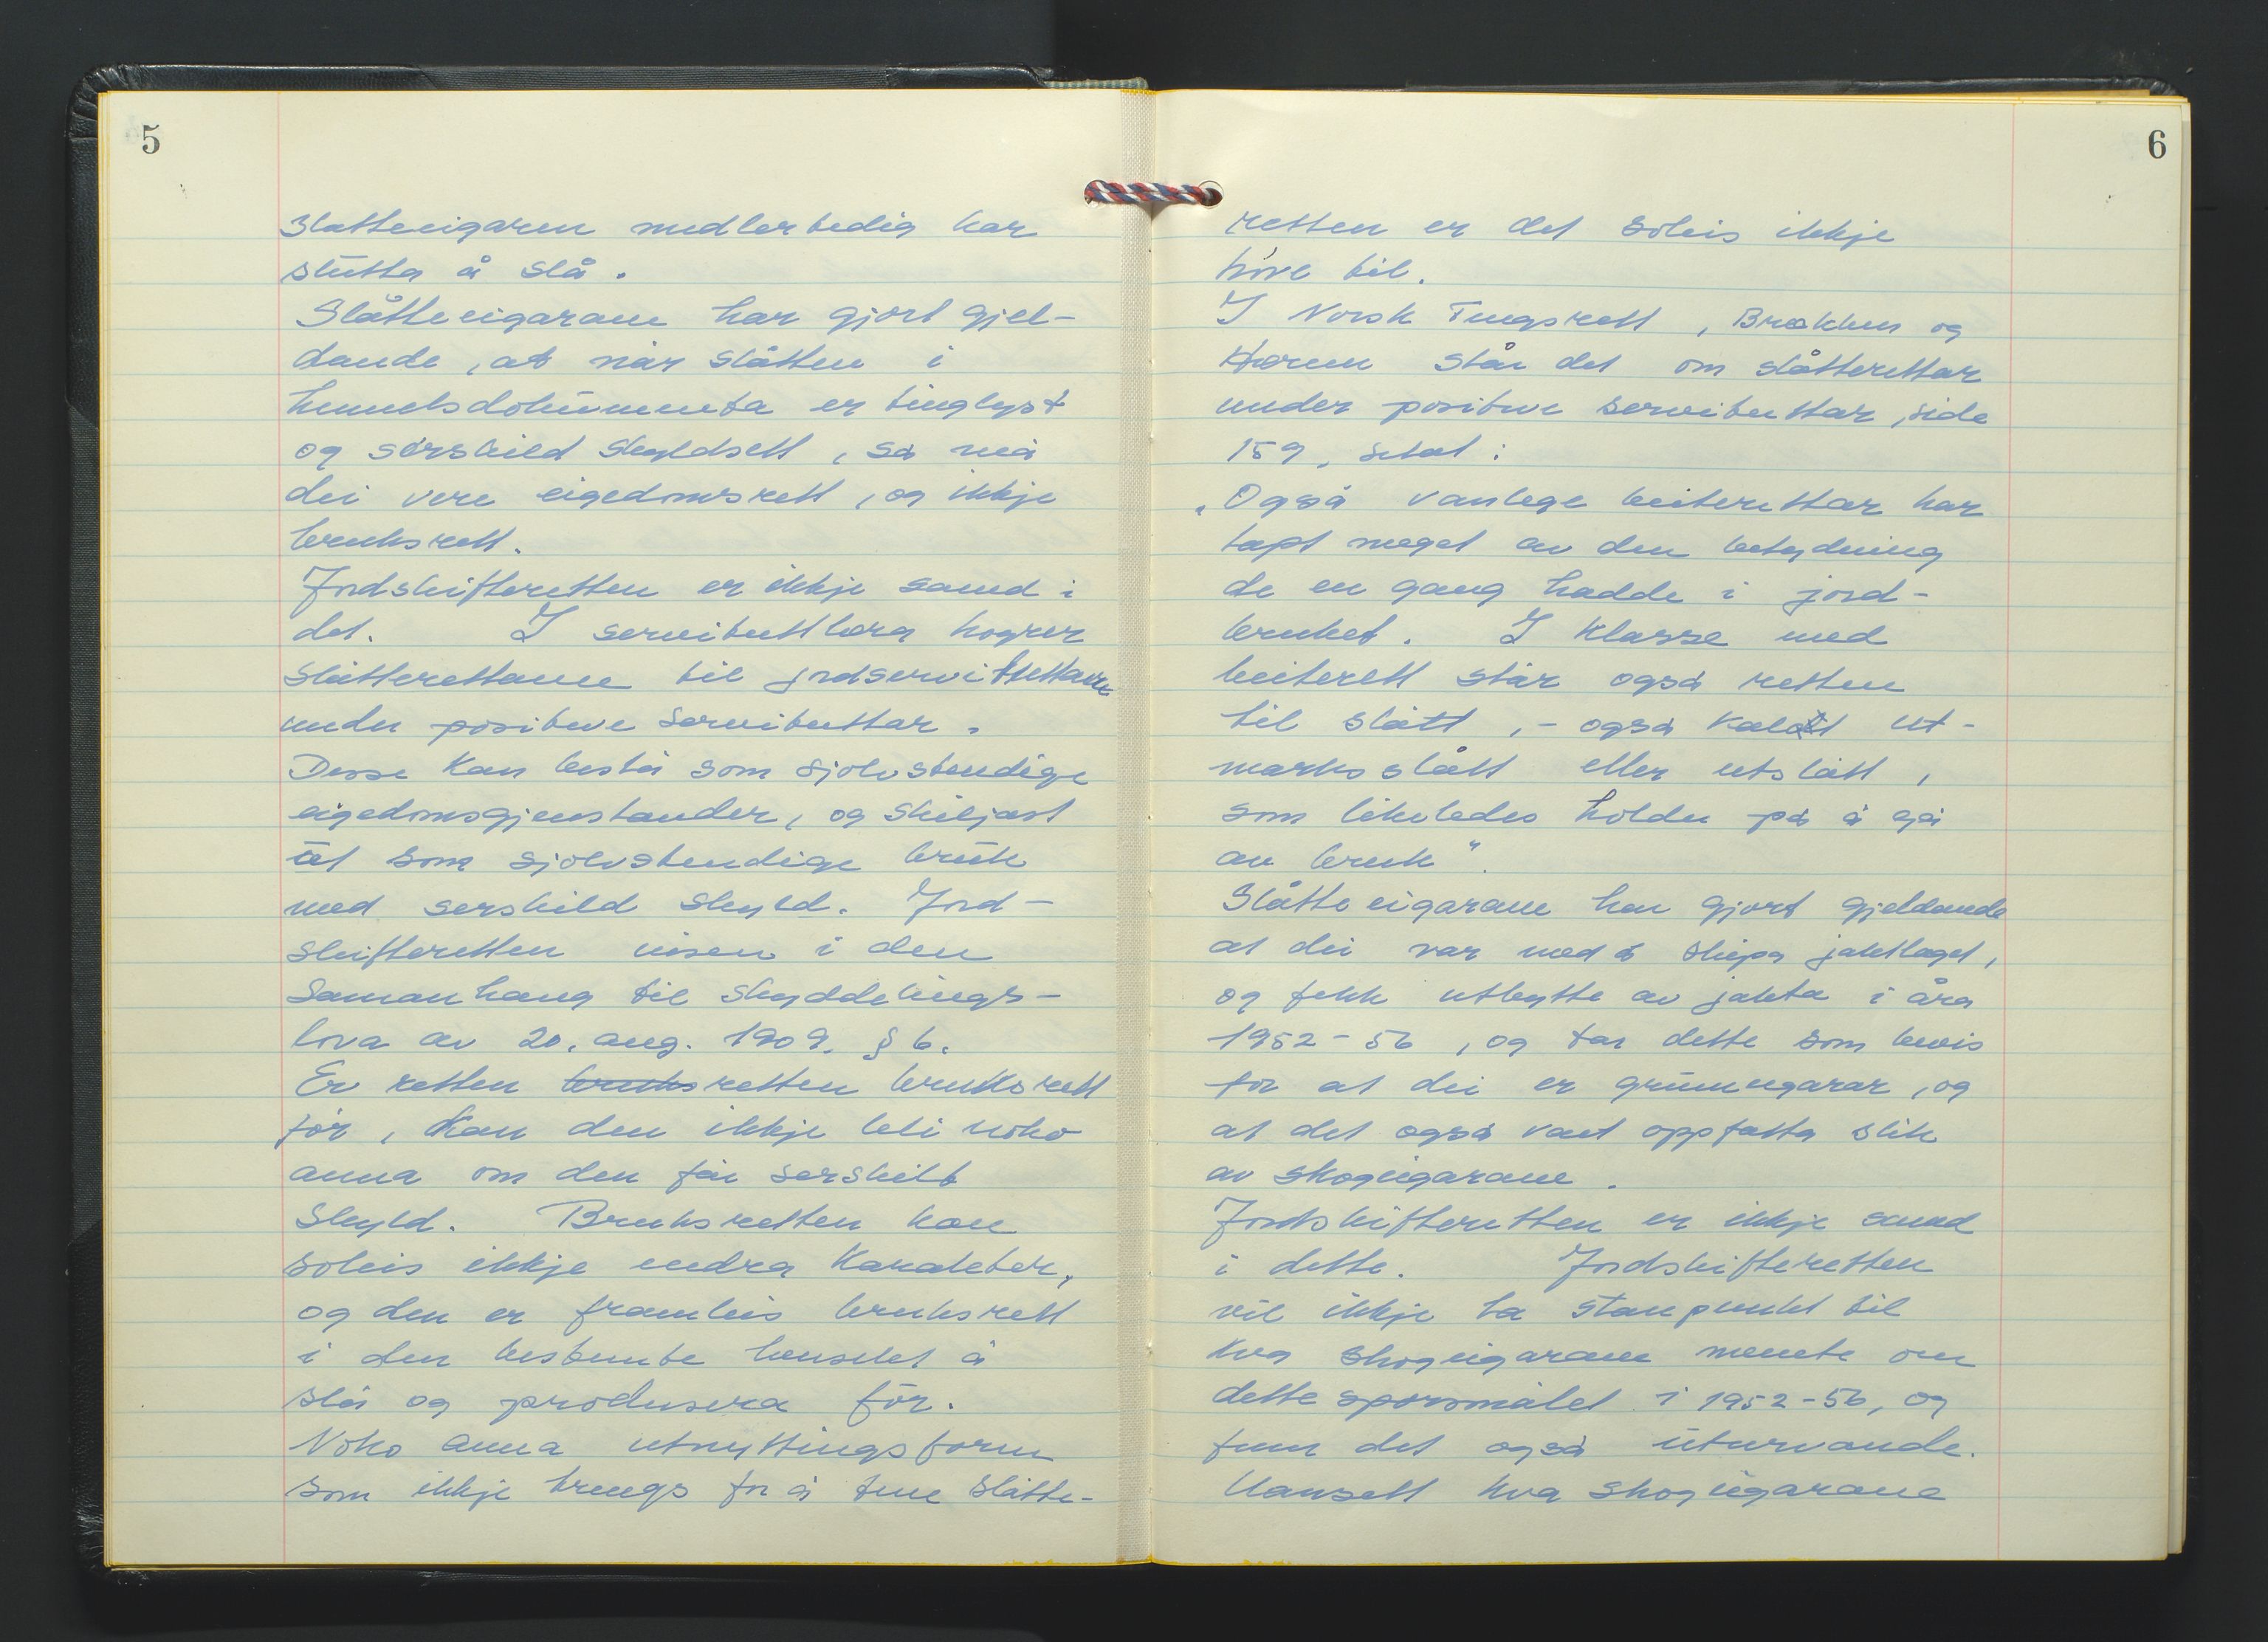 5
Slåtteeigaren midlertidig har
slutta å slå.
Slåtteeigarane har gjort gjel-
dande, at når slåtten i
heimelsdokumenta er tinglyst
og særskild skyldsett, så må
dei vere eigedomsrett, og ikkje
bruksrett.
Jordskifteretten er ikkje samd i
det. I servituttlæra høyrer
slåtterettane til jordservituttane
under positive servituttar.
Desse kan bestå som sjølvstendige
eigedomsgjenstander, og skiljast
ut som sjølvstendige bruk
med serskild skyld. Jord-
skifteretten viser i den
samanheng til skylddelings-
lova av 20. aug. 1909. § 6.
Er retten bruksretten bruksrett
før, kan den ikkje bli noko
anna om den får serskilt
skyld. Bruksretten kan
soleis ikkje endra karakter,
og den er framleis bruksrett
i den bestemte hensikt å
slå og produsera fôr.
Noko anna utnyttingsform
som ikkje trengs for å tene slåtte-
6
retten er det soleis ikkje
høve til.
I Norsk Tingsrett, Brækhus og
Hærem står det om slåtterettar
under positive servituttar, side
159, sitat:
„Også vanlege beiterettar har
tapt noget av den betydning
de en gang hadde i jord-
bruket. I klasse med
beiterett står også retten
til slått, - også kalt ut-
marksslått eller utslått,
som likeledes holder på å gå
av bruk".
Slåtteeigarane har gjort gjeldande
at dei var med å skipa jaktlaget,
og fekk utbytte av jakta i åra
1952-56, og tar dette som bevis
for at dei er grunneigarar, og
at det også vart oppfatta slik
av skogeigarane.
Jordskifteretten er ikkje samd
i dette. Jordskifteretten
vil ikkje ta stanpunkt til
kva skogeigarane mente om
dette spørsmålet i 1952-56, og
finn det også uturvande.
Uansett kva skogeigarane